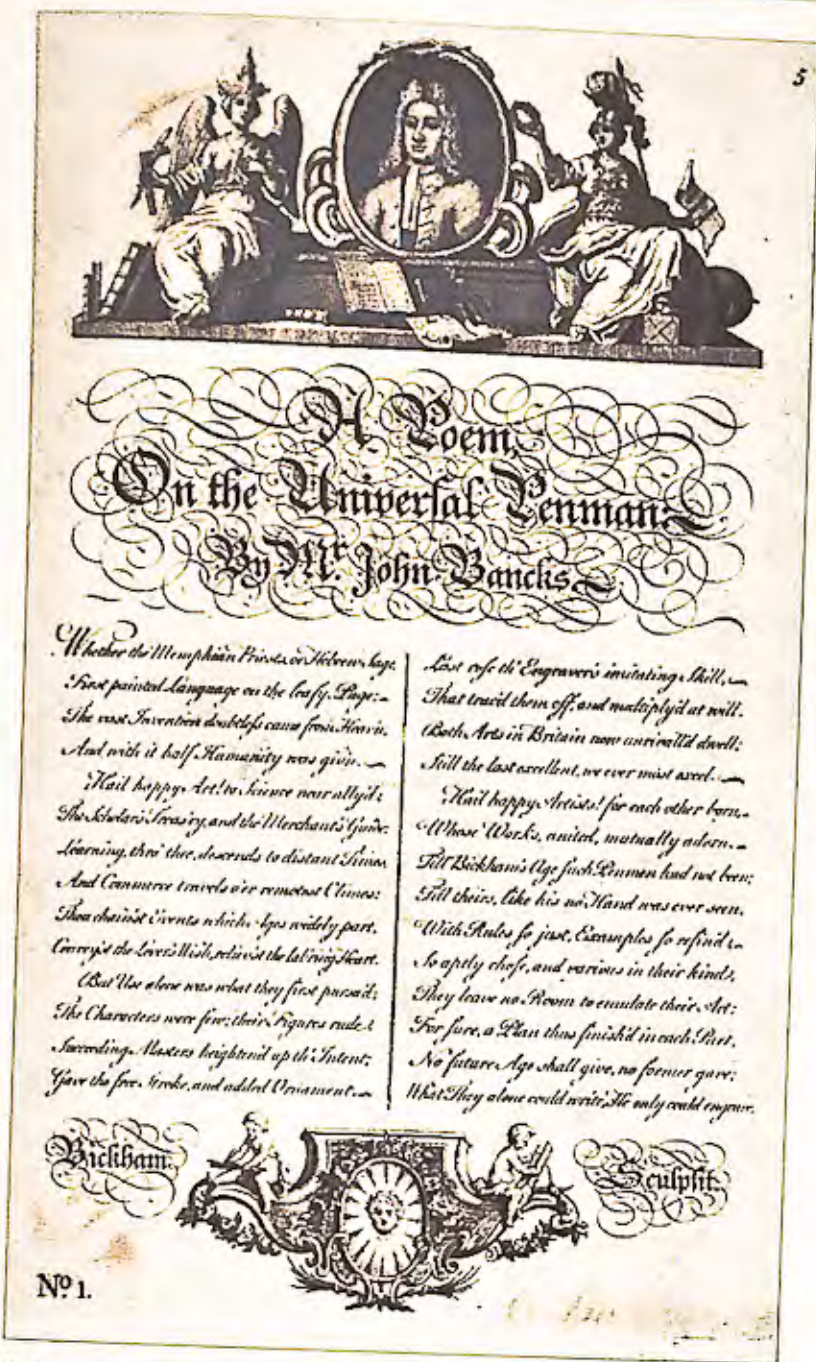 5
A Poem,
On the Univerſal Penman:
By Mr. John Bancks
Whether the Memphian Priests, or Hebrew Sage
First painted Language on the leafy Page:
The vast Invention doubtleſs came from Heav'n,
And with it half Humanity was giv'n.
Hail happy Art! to Science near ally'd;
The Scholar's Treas'ry, and the Merchant's Guide.
Learning, thro' thee, descends to distant Times,
And Commerce travels o'er remotest Climes:
Thou chain'st Events which Ages widely part,
Convey'st the Lover's Wish, reliev'st the lab'ring Heart.
But Use alone was what they first pursu'd;
The Characters were few; their Figures rude:
Succeeding Masters heighten'd up th' Intent;
Gave the free Stroke, and added Ornament.
Last roſe th' Engraver's imitating Skill,
That trac'd them off, and multiply'd at will.
Both Arts in Britain now unrivall'd dwell;
Still the last excellent, we ever must excel.
Hail happy Artists! for each other born,
Whose Works, united, mutually adorn.
Till Bickham's Age ſuch Penmen had not been;
Till theirs, like his no Hand was ever seen.
With Rules ſo just, Examples ſo refin'd;
So aptly choſe, and various in their kinds,
They leave no Room to emulate their Art:
For ſure, a Plan thus finiſh'd in each Part,
No future Age shall give, no former gave;
What They alone could write, He only could engrave.
Bickham.
Sculpſit.
No. 1.